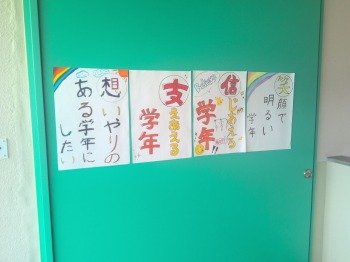 笑顔で
明るい
学年
信じあえる
学年!!
支えあえる
学年
想いやりの
ある学年に
したい